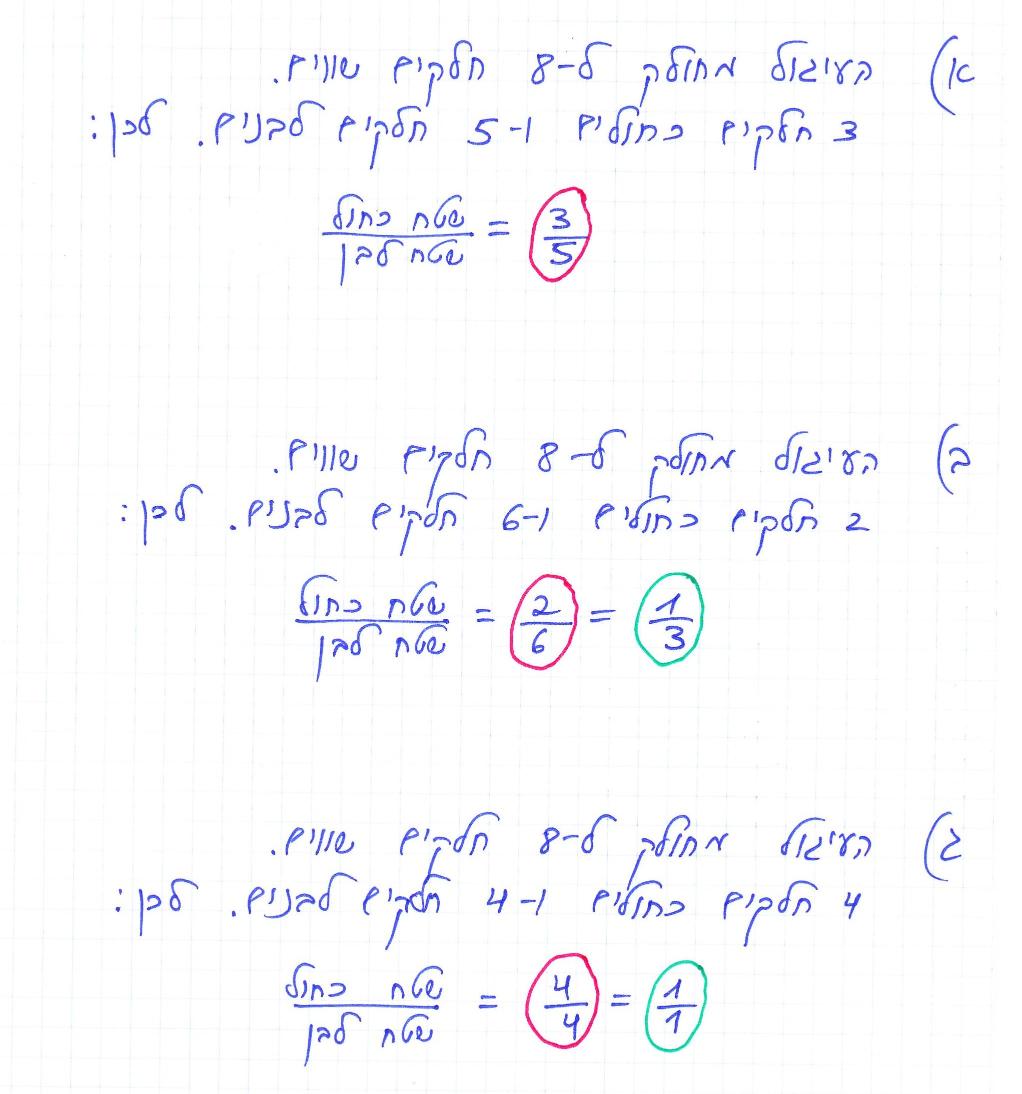 א) העיגול מחולק ל-8 חלקים שווים.
3 חלקים כחולים ו-5 חלקים לבנים. לכן:
שטח כחול / שטח לבן = 3/5
ב) העיגול מחולק ל-8 חלקים שווים.
2 חלקים כחולים ו-6 חלקים לבנים. לכן:
שטח כחול / שטח לבן = 2/6 = 1/3
ג) העיגול מחולק ל-8 חלקים שווים.
4 חלקים כחולים ו-4 חלקים לבנים. לכן:
שטח כחול / שטח לבן = 4/4 = 1/1